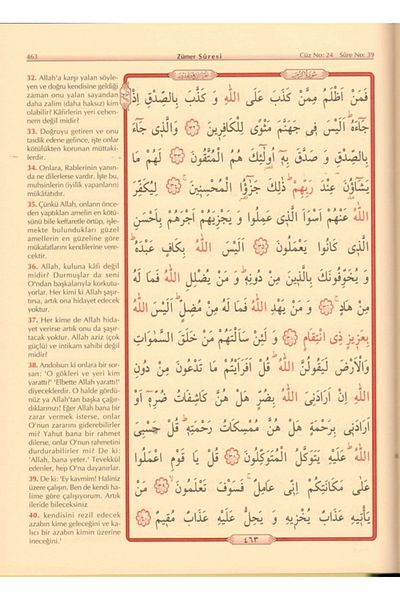 463
Zümer Sûresi
Cüz No: 24 Sûre No: 39
32. Allah'a karşı yalan söyle-
yen ve doğru kendisine geldiği
zaman onu yalan sayandan
daha zalim (daha haksız) kim
olabilir? Kâfirlerin yeri cehen-
nem değil midir?
33. Doğruyu getiren ve onu
tasdik edene gelince, işte onlar
kötülükten korunan müttaki-
lerdir.
34. Onlara, Rablerinin yanın-
da ne dilerlerse vardır. İşte bu,
muhsinlerin (iyilik yapanların)
mükâfatıdır.
35. Çünkü Allah, onların önce-
den yaptıkları amelin en kötü-
sünü bile keffaretle örtüp, işle-
mekte bulundukları güzel
amellerin en güzeline göre
mükafatlarını kendilerine vere-
cektir.
36. Allah, kuluna kâfi değil
midir? Durmuşlar da seni
O'ndan başkalarıyla korkutu-
yorlar. Her kimi ki Allah şaşır-
tırsa, artık ona hidayet edecek
yoktur.
37. Her kime de Allah hida-
yet verirse artık onu da şaşır-
tacak yoktur. Allah aziz (çok
güçlü) ve intikam sahibi değil
midir?
38. Andolsun ki onlara bir sor-
san: "O gökleri ve yeri kim
yarattı?" "Elbette Allah yarattı!"
diyeceklerdir. O halde gördü-
nüz ya Allah'tan başka çağır-
dıklarınızı! Eğer Allah bana bir
zarar vermek isterse, onlar
O'nun zararını giderebilirler
mi? Yahut bana bir rahmet
dilerse, onlar O'nun rahmetini
durdurabilirler mi? De ki:
"Allah, bana yeter." Tevekkül
edenler, hep O'na dayanırlar.
39. De ki: 'Ey kavmim! Haliniz
üzere çalışın. Ben de kendi ha-
lime göre çalışıyorum. Artık
ileride bileceksiniz
40. kendisini rezil edecek
azabın kime geleceğini ve ka-
lıcı bir azabın kimin üzerine
ineceğini.'
فَمَنْ اَظْلَمُ مِمَّنْ كَذَبَ عَلَى اللّٰهِ وَ كَذَّبَ بِالصِّدْقِ اِذْ
جَاءَهُ اَلَيْسَ فِى جَهَنَّمَ مَثْوًى لِلْكَافِرِينَ ﴿٣٢﴾ وَالَّذِى جَاءَ
بِالصِّدْقِ وَ صَدَّقَ بِهِ اُولٰئِكَ هُمُ الْمُتَّقُونَ ﴿٣٣﴾ لَهُمْ مَا
يَشَاؤُنَ عِنْدَ رَبِّهِمْ ذٰلِكَ جَزٰؤُا الْمُحْسِنِينَ ﴿٣٤﴾ لِيُكَفِّرَ
اللّٰهُ عَنْهُمْ اَسْوَاَ الَّذِى عَمِلُوا وَ يَجْزِيَهُمْ اَجْرَهُمْ بِاَحْسَنِ
الَّذِى كَانُوا يَعْمَلُونَ ﴿٣٥﴾ اَلَيْسَ اللّٰهُ بِكَافٍ عَبْدَهُ
وَ يُخَوِّفُونَكَ بِالَّذِينَ مِنْ دُونِهِ وَ مَنْ يُضْلِلِ اللّٰهُ فَمَا لَهُ
مِنْ هَادٍ ﴿٣٦﴾ وَ مَنْ يَهْدِ اللّٰهُ فَمَا لَهُ مِنْ مُضِلٍّ اَلَيْسَ اللّٰهُ
بِعَزِيزٍ ذِى انْتِقَامٍ ﴿٣٧﴾ وَ لَئِنْ سَاَلْتَهُمْ مَنْ خَلَقَ السَّمٰوَاتِ
وَالْاَرْضَ لَيَقُولُنَّ اللّٰهُ قُلْ اَفَرَاَيْتُمْ مَا تَدْعُونَ مِنْ دُونِ
اللّٰهِ اِنْ اَرَادَنِىَ اللّٰهُ بِضُرٍّ هَلْ هُنَّ كَاشِفَاتُ ضُرِّهِ اَوْ
اَرَادَنِى بِرَحْمَةٍ هَلْ هُنَّ مُمْسِكَاتُ رَحْمَتِهِ قُلْ حَسْبِىَ
اللّٰهُ عَلَيْهِ يَتَوَكَّلُ الْمُتَوَكِّلُونَ ﴿٣٨﴾ قُلْ يَا قَوْمِ اعْمَلُوا
عَلٰى مَكَانَتِكُمْ اِنِّى عَامِلٌ فَسَوْفَ تَعْلَمُونَ ﴿٣٩﴾ مَنْ
يَاْتِيهِ عَذَابٌ يُخْزِيهِ وَ يَحِلُّ عَلَيْهِ عَذَابٌ مُقِيمٌ ﴿٤٠﴾
٤٦٣